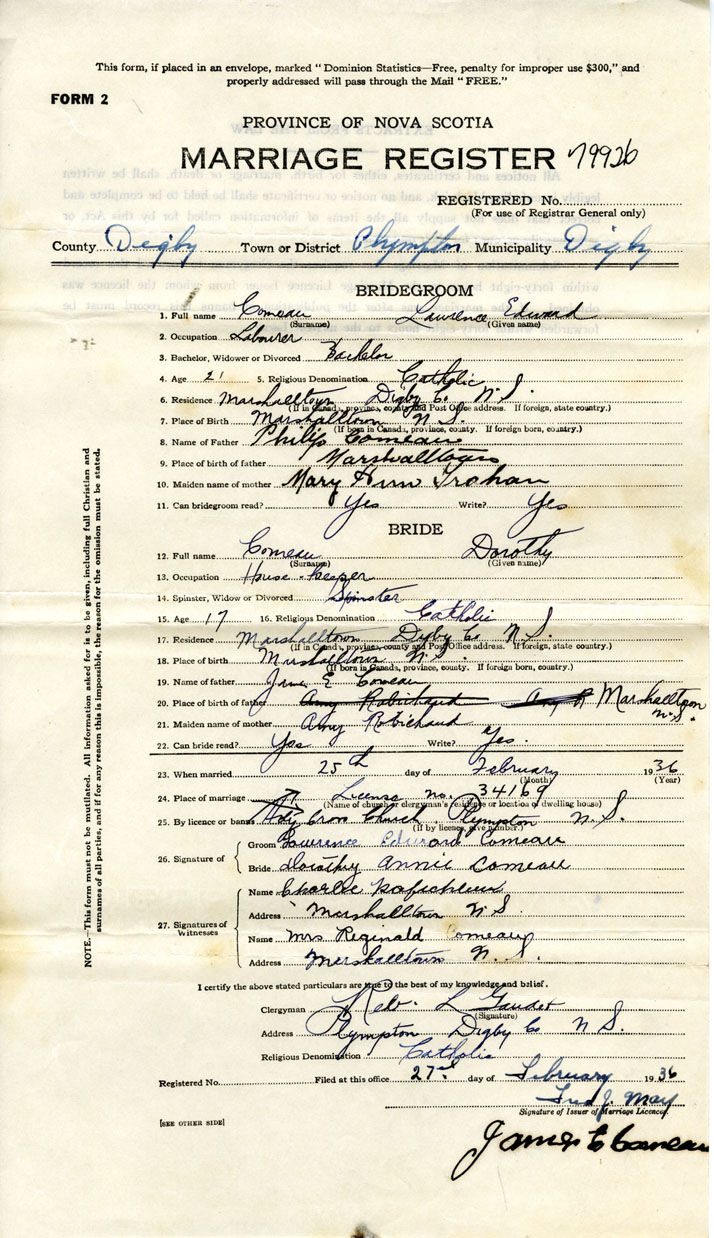 This form, if placed in an envelope, marked "Dominion Statistics—Free, penalty for improper use $300," and
properly addressed will pass through the Mail "FREE."
FORM 2
PROVINCE OF NOVA SCOTIA
MARRIAGE REGISTER 79926
REGISTERED No.
(For use of Registrar General only)
County Digby Town or District Plympton Municipality Digby
BRIDEGROOM
1. Full name Comeau Lawrence Edward
(Surname) (Given name)
2. Occupation Labourer
3. Bachelor, Widower or Divorced Bachelor
4. Age 21 5. Religious Denomination Catholic
6. Residence Marshalltown Digby Co. N.S.
(If in Canada, province, county and Post Office address. If foreign, state country.)
7. Place of Birth Marshalltown N.S.
(If born in Canada, province, county. If foreign born, country.)
8. Name of Father Philip Comeau
9. Place of birth of father Marshalltown
10. Maiden name of mother Mary Ann Trohan
11. Can bridegroom read? Yes Write? Yes
BRIDE
12. Full name Comeau Dorothy
(Surname) (Given name)
13. Occupation House-keeper
14. Spinster, Widow or Divorced Spinster
15. Age 17 16. Religious Denomination Catholic
17. Residence Marshalltown Digby Co. N.S.
(If in Canada, province, county and Post Office address. If foreign, state country.)
18. Place of birth Marshalltown N.S.
(If born in Canada, province, county. If foreign born, country.)
19. Name of father E Comeau
20. Place of birth of father Amy Robichaud Marshalltown
N.S.
21. Maiden name of mother Amy Robichaud
22. Can bride read? Yes Write? Yes.
23. When married 25th day of February 1936
(Month) (Year)
24. Place of marriage License no. 34169
(Name of church or clergyman's residence or location of dwelling house)
25. By licence or banns Holy Cross Church Plympton N.S.
(If by licence, give number.)
26. Signature of
Groom Lawrence Edward Comeau
Bride Dorothy Annie Comeau
27. Signatures of
Witnesses
Name Charlie
Address Marshalltown N S
Name Mrs Reginald Comeau
Address Marshalltown N.S.
I certify the above stated particulars are true to the best of my knowledge and belief.
Clergyman Rev. L Gaudet
(Signature)
Address Plympton Digby Co N S.
Religious Denomination Catholic
Registered No. Filed at this office 27 day of February 1936
Fred J. May
Signature of Issuer of Marriage Licences
[SEE OTHER SIDE]
James E Comeau
NOTE.—This form must not be mutilated. All information asked for is to be given, including full Christian and
surnames of all parties, and if for any reason this is impossible, the reason for the omission must be stated.